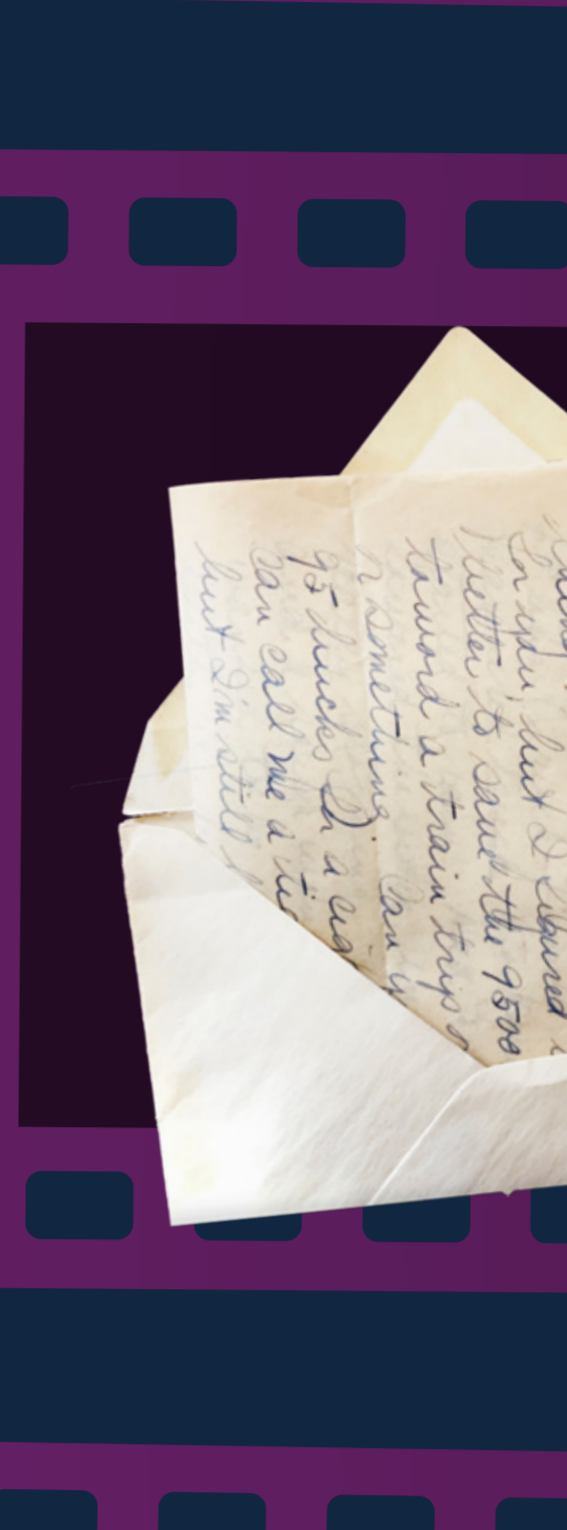 for you, but I figured
better to save the 9500
toward a train trip o
r something. Can y
95 bucks On a cig
can call me a tig
but I'm still